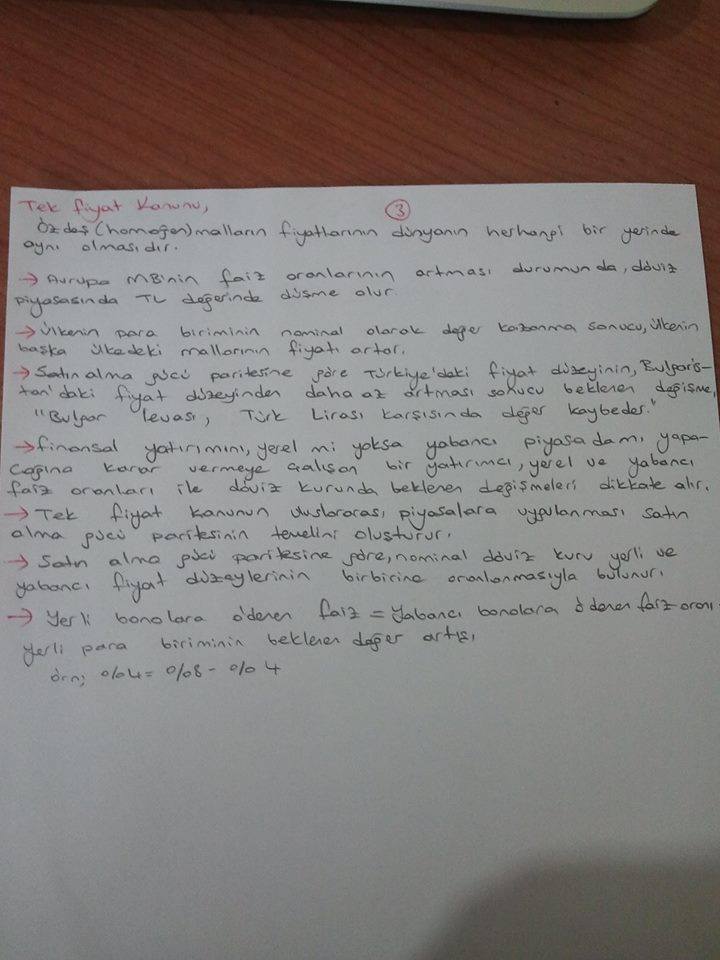 Tek fiyat Kanunu,
3
Özdeş (homojen) malların fiyatlarının dünyanın herhangi bir yerinde
aynı olmasıdır.
→ Avrupa MB'nin faiz oranlarının artması durumunda, döviz
piyasasında TL değerinde düşme olur.
→ Ülkenin para biriminin nominal olarak değer kazanma sonucu, ülkenin
başka ülkedeki mallarının fiyatı artar.
→ Satın alma gücü paritesine göre Türkiye'daki fiyat düzeyinin, Bulgaris-
tan'daki fiyat düzeyinden daha az artması sonucu beklenen değişme,
"Bulgar levası, Türk Lirası karşısında değer kaybeder."
→ finansal yatırımını, yerel mi yoksa yabancı piyasada mı, yapa-
cağına karar vermeye çalışan bir yatırımcı, yerel ve yabancı
faiz oranları ile döviz kurunda beklenen değişmeleri dikkate alır.
→ Tek fiyat kanunun uluslararası, piyasalara uygulanması satın
alma gücü paritesinin temelini oluşturur.
→ Satın alma gücü paritesine göre, nominal döviz kuru yerli ve
yabancı fiyat düzeylerinin birbirine oranlanmasıyla bulunur.
→ Yerli bonolara ödenen faiz = Yabancı bonolara ödenen faiz oranı -
yerli para biriminin beklenen değer artışı
örn; %4 = %8 - %4